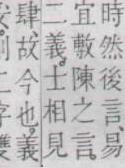 時然後言易
宜敷陳之言
二義士相見
肆故今也義